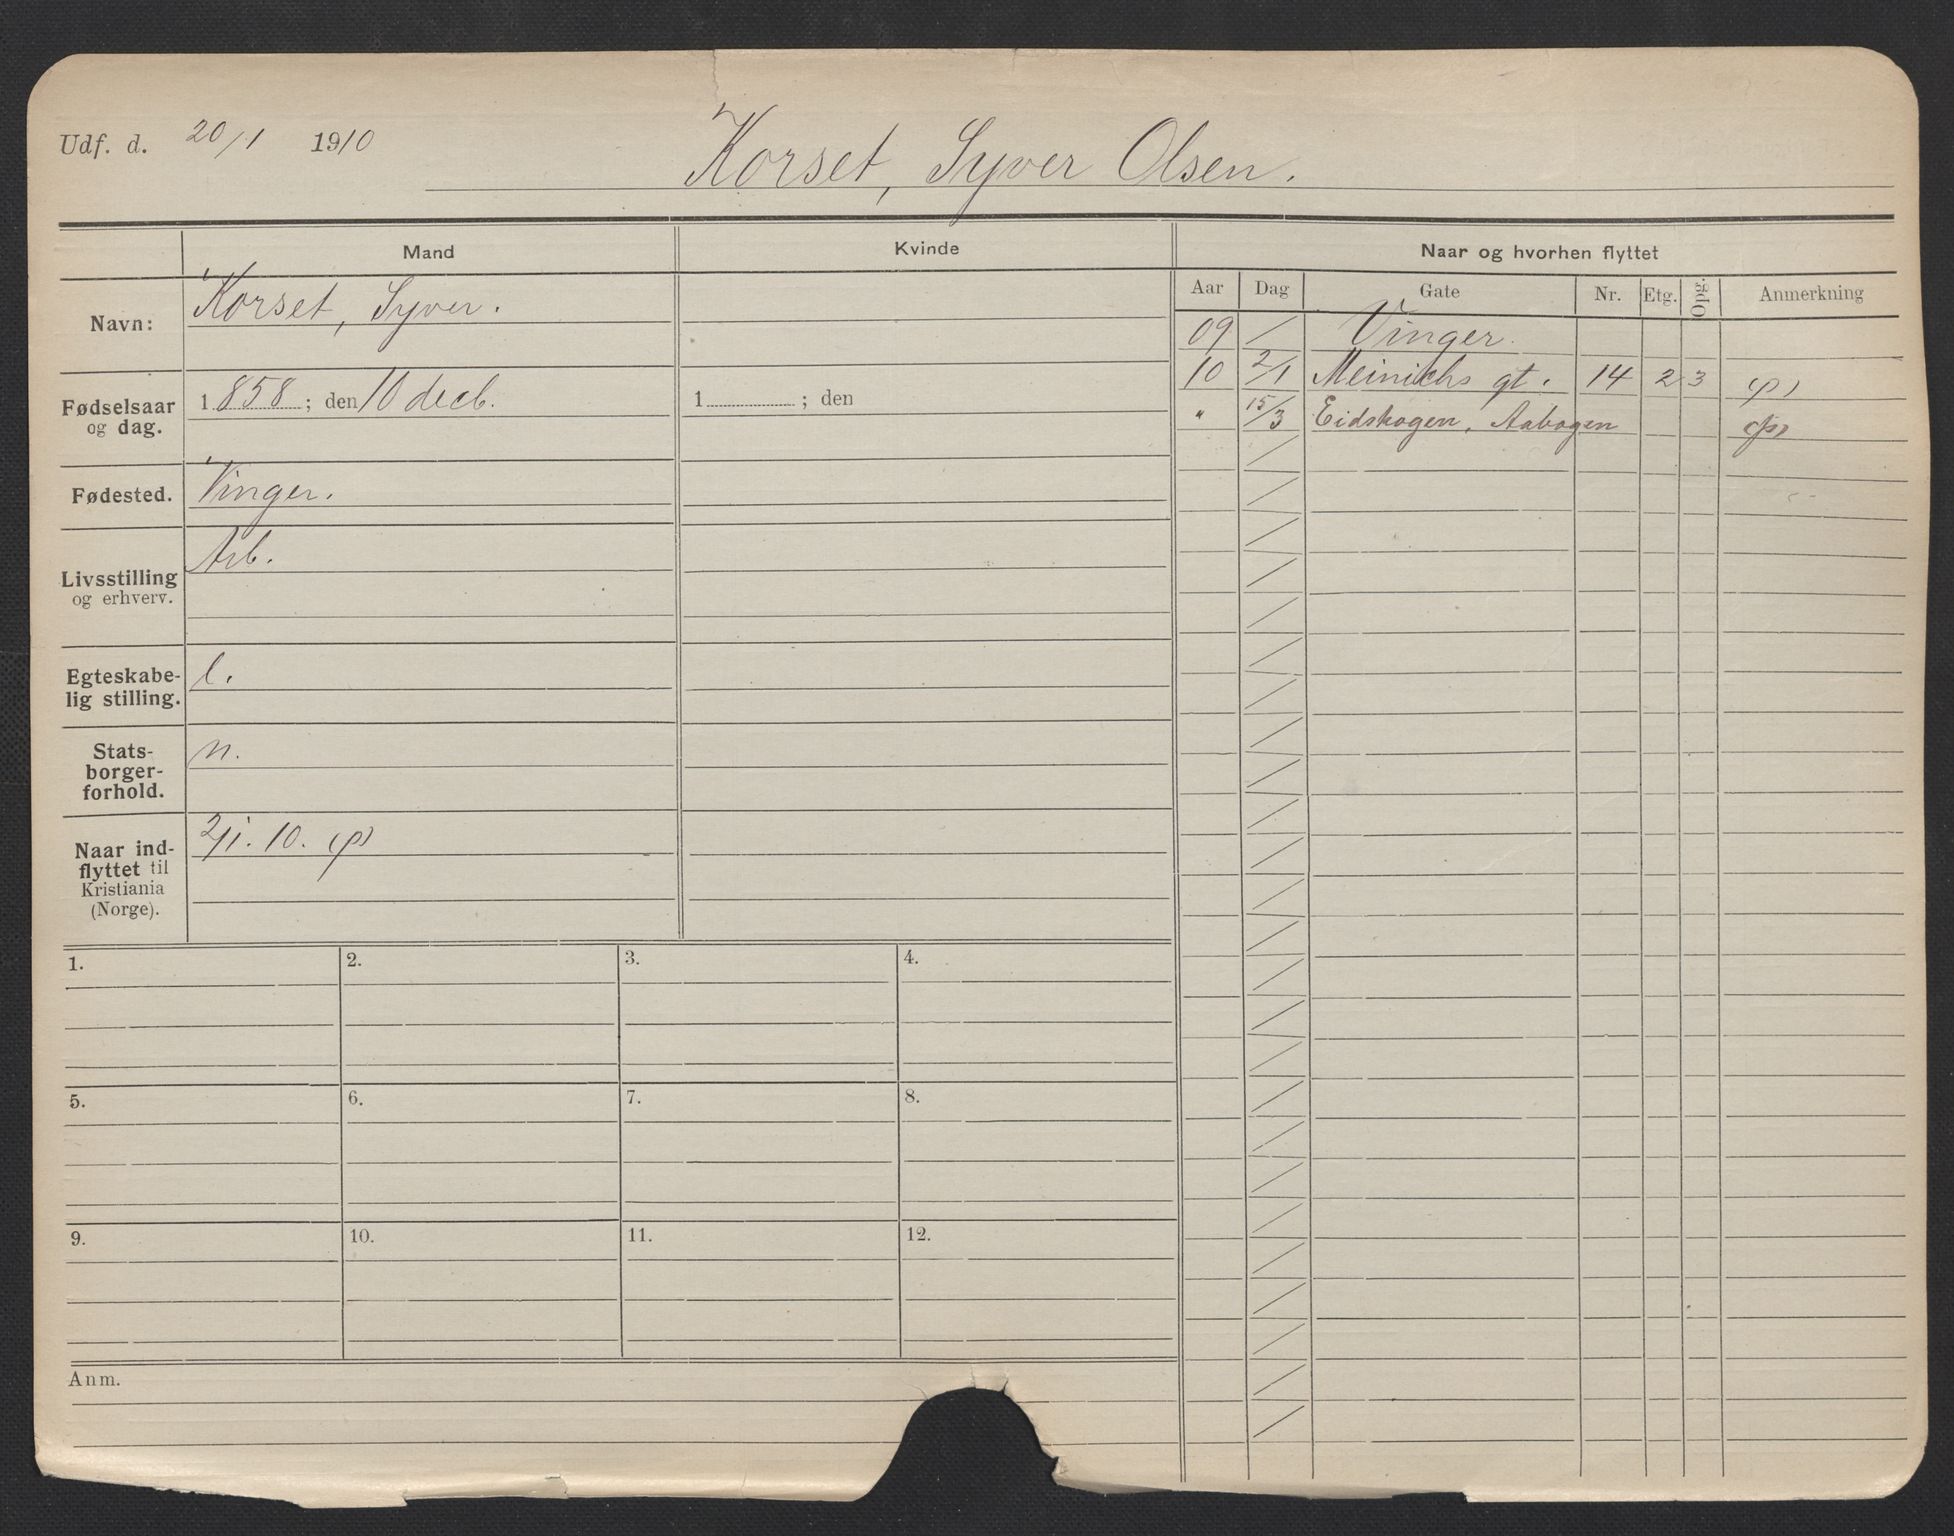 Udf. d. 20/1 1910
Korset, Syver Olsen.
Mand
Kvinde
Naar og hvorhen flyttet
Aar Dag Gate Nr. Etg. Opg. Anmerkning
Navn: Korset, Syver.
09 / Vinger.
10 2/1 Meinichs gt. 14 2 3 (p)
" 15/3 Eidskogen, Aabogen (p)
Fødselsaar
og dag.
1858; den 10 decb.
1 ; den
Fødested. Vinger.
Livsstilling
og erhverv.
Arb.
Egteskabe-
lig stilling.
Stats-
borger-
forhold.
n.
Naar ind-
flyttet til
Kristiania
(Norge).
2/1. 10. (p)
1. 2. 3. 4.
5. 6. 7. 8.
9. 10. 11. 12.
Anm.